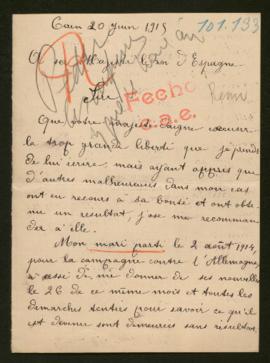 Caen 20 juin 1915
101.133
A sa Majesté le Roi d'Espagne
R
Sire
Fecho
a.e.
Que votre majesté daigne excuser
la trop grande liberté que je prends
de lui écrire, mais ayant appris que
d'autres malheureuses dans mon cas
ont eu recours à sa bonté et ont obte
nu un résultat, j'ose me recomman
der à elle.
Mon mari parti le 2 août 1914,
pour la campagne contre l'Allemagne,
a cessé de me donner de ses nouvelles
le 26 de ce même mois et toutes les
démarches tentées pour savoir ce qu'il
est devenu sont demeurées sans résultat.